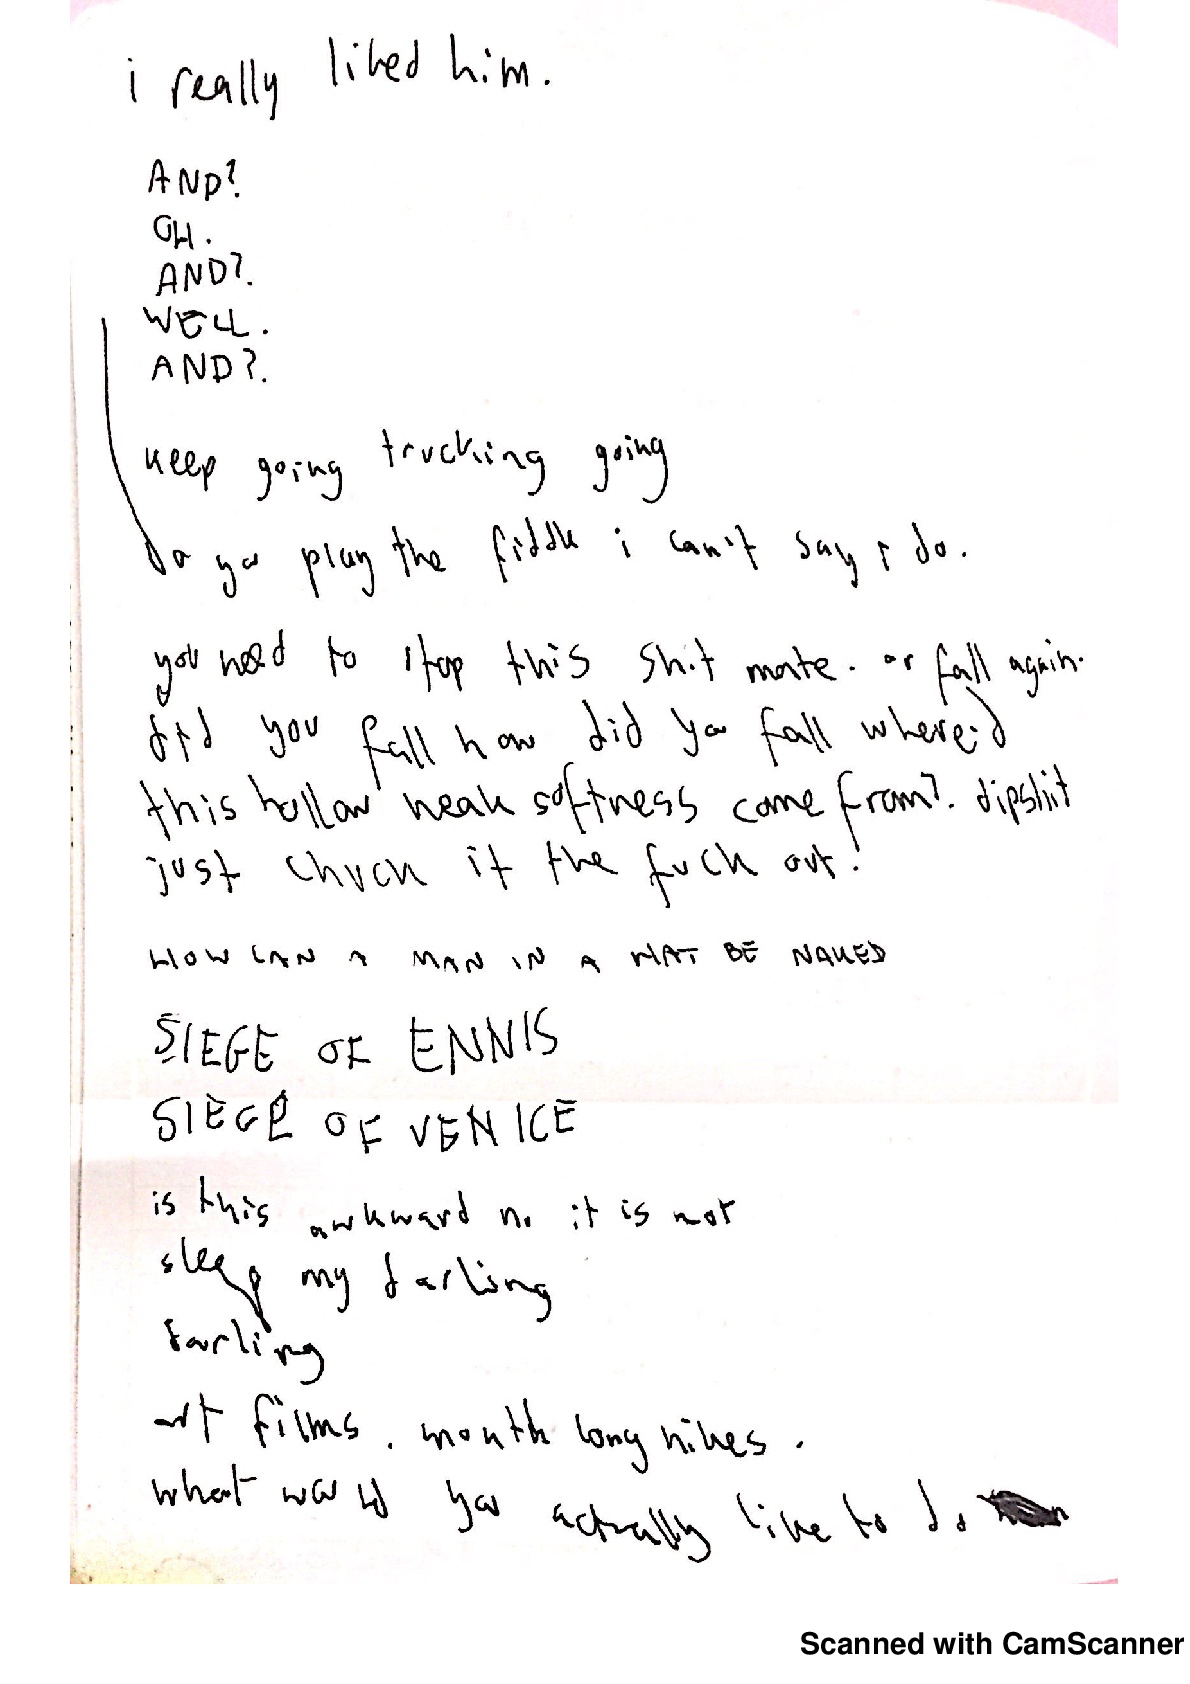 i really liked him.
AND?
OH.
AND?.
WELL.
AND?.
keep going trucking going
do you play the fiddle i can't say i do.
you need to stop this shit mate. or fall again.
did you fall how did you fall where'd
this hollow weak softness come from?. dipshit
just chuck it the fuck out!
HOW CAN A MAN IN A HAT BE NAKED
SIEGE OF ENNIS
SIEGE OF VENICE
is this awkward no it is not
sleep my darling
darling
art films. month long hikes.
what would you actually like to do
Scanned with CamScanner